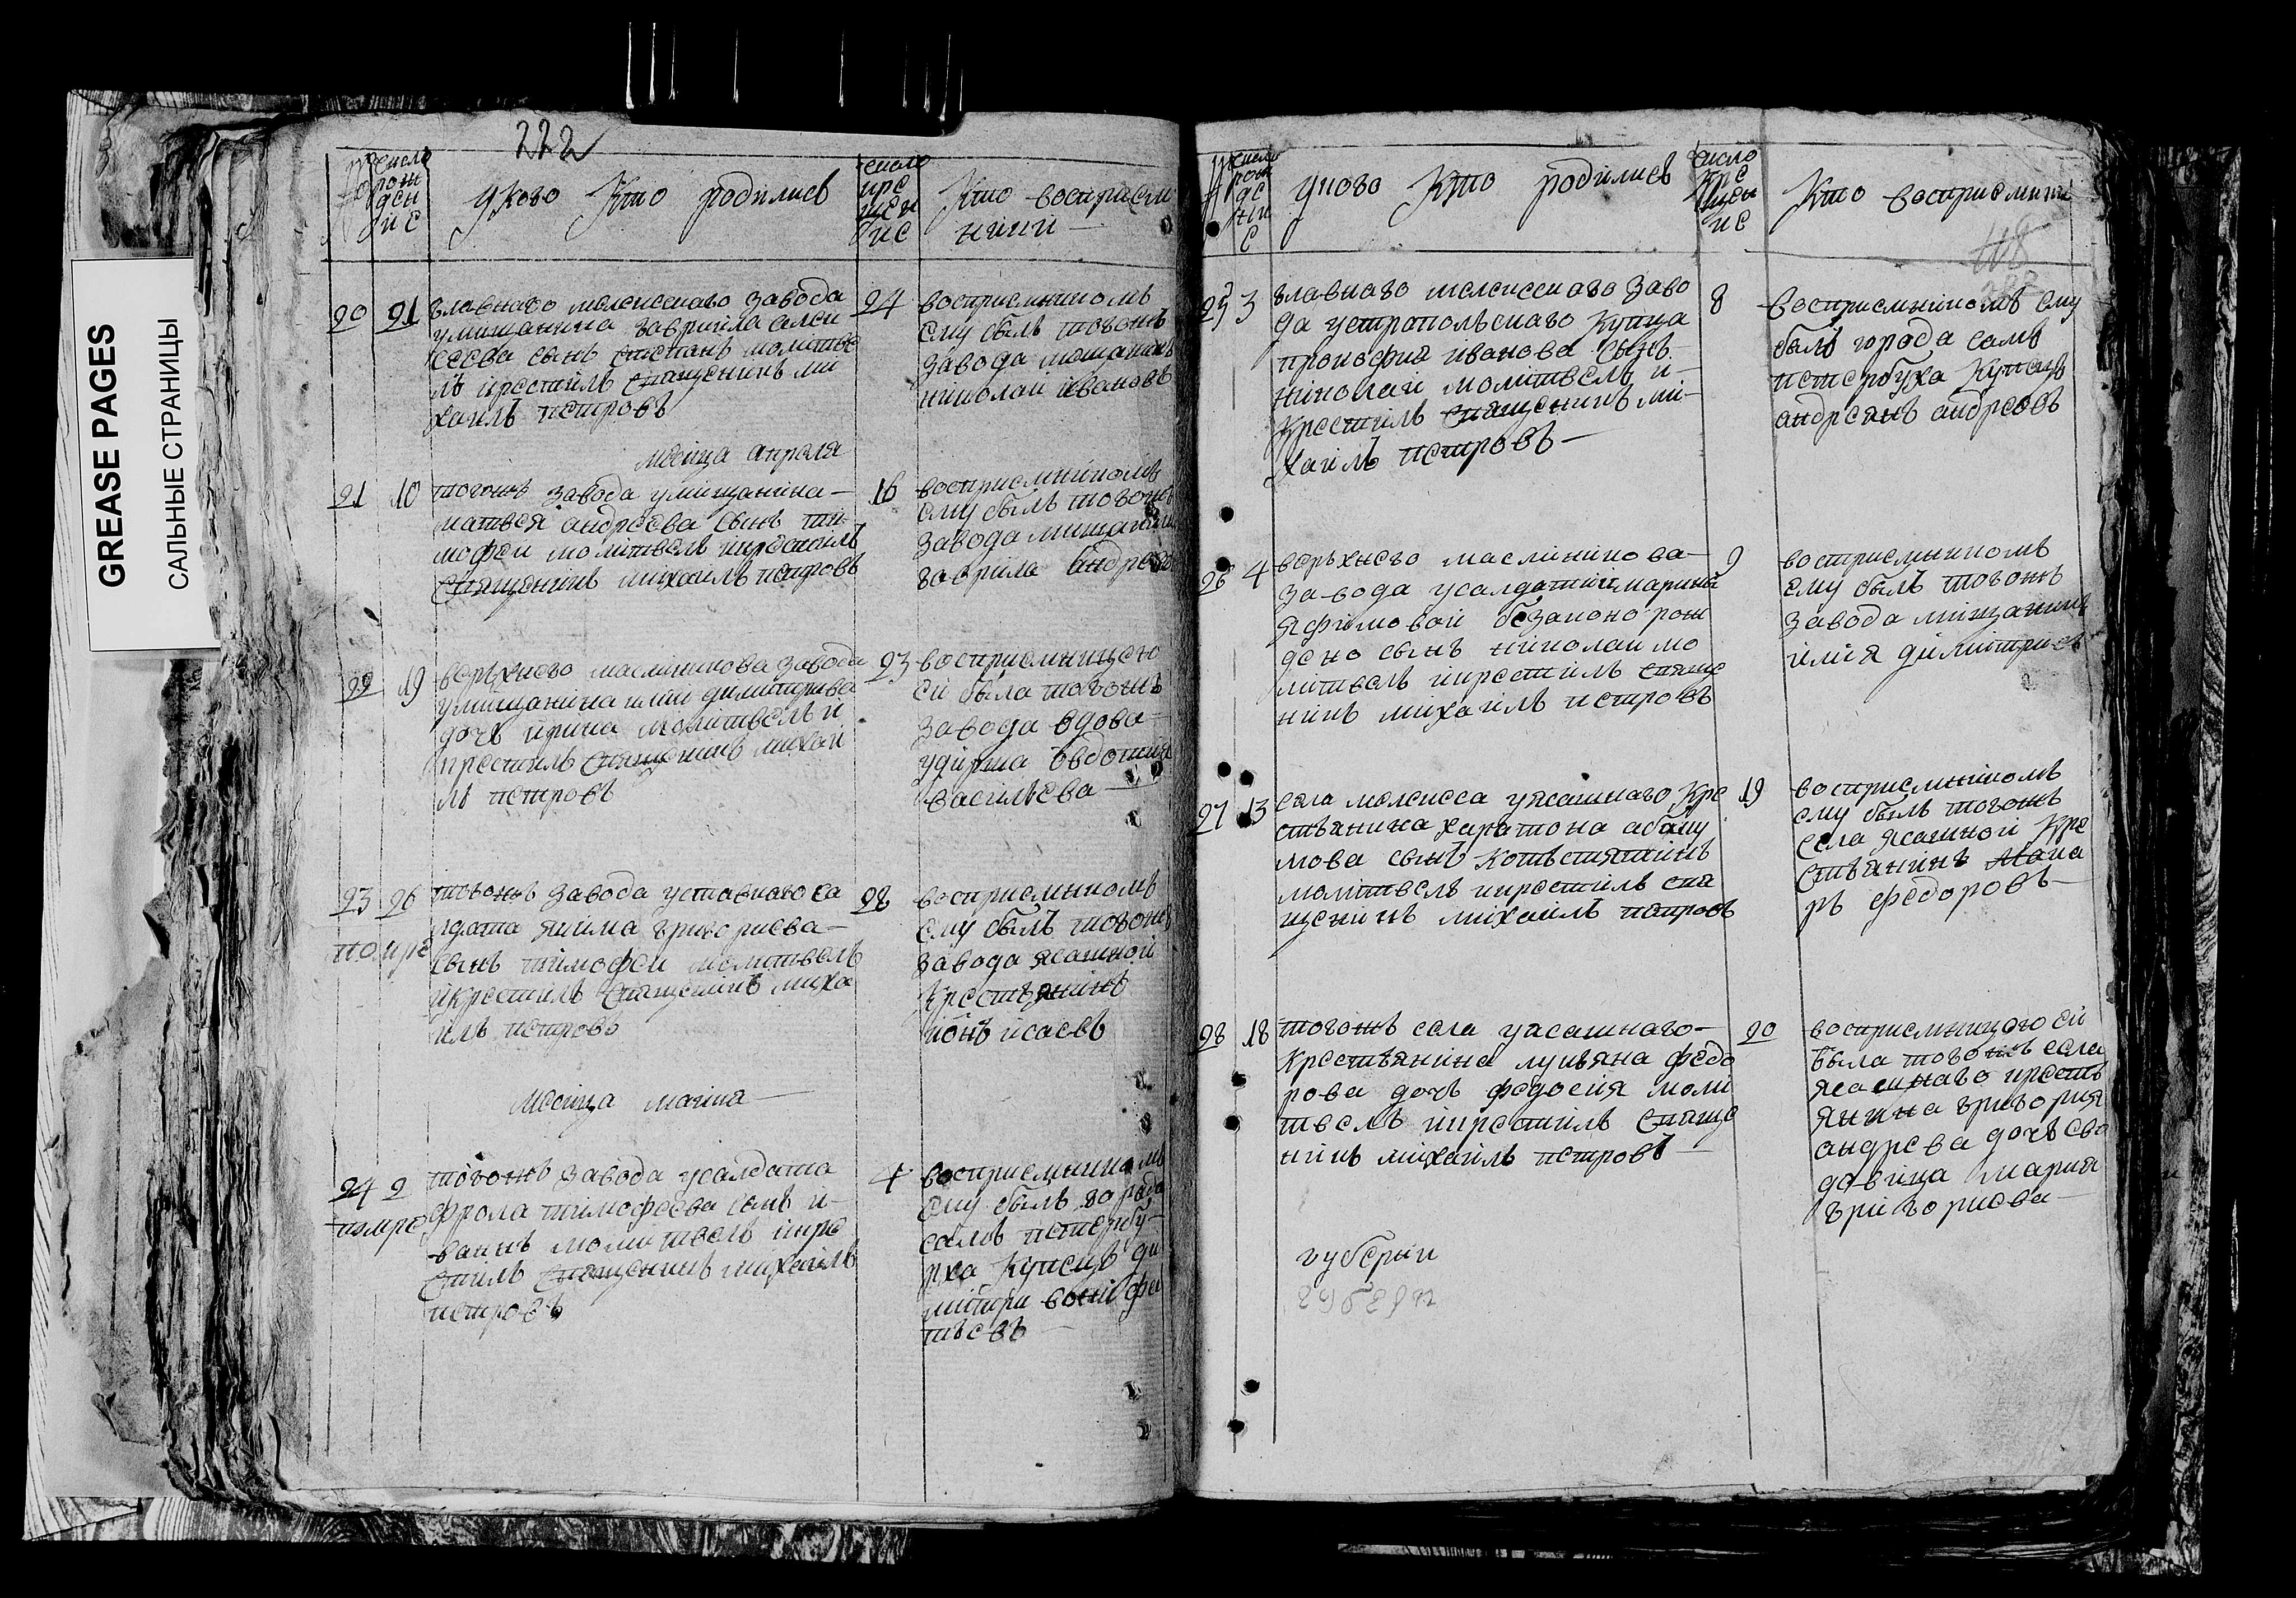 GREASE PAGES
САЛЬНЫЕ СТРАНИЦЫ
222
число рождение
у ково кто родились
число крещение
кто восприемники
20 21 главнаго мелекескаго завода
умищанина гаврiила алек
сеева сынъ степанъ молитве
лъ крестилъ священникъ ми
хаилъ петровъ
24 восприемникомъ
ему былъ тогожъ
завода мещанинъ
николаи ивановъ
месяца апреля
21 10 тогожъ завода умищанина
матвея андреева сынъ ти
мофеи молитвелъ икрестилъ
священникъ михаилъ петровъ
16 восприемникомъ
ему былъ тогожъ
завода мищанинъ
гаврила андреевъ
22 19 верхнего масленикова завода
умищанина илии димитриева
дочь ирина молитвелъ и
крестилъ священникъ михаи
лъ петровъ
23 восприемницею
еи была тогожъ
завода вдова
овдотия
василиева
23 26 тогожъ завода уставнаго са
лдата якима григориева
сынъ тимофеи молитвелъ
икрестилъ священникъ миха
илъ петровъ
помре
28 восприемникомъ
ему былъ тогожъ
завода ясашной
крестьянинъ
ионъ исаевъ
месяца маия
24 2 тогожъ завода усалдата
фрола тимофеева сынъ и
ваннъ молитвелъ икре
стилъ священникъ михаилъ
петровъ
помре
4 восприемникомъ
ему былъ города
санъ петербу
рха купецъ ди
митри вонифа
тьевъ
число рождение
укого кто родились
число крещение
кто восприемники
118
25 3 главнаго мелекескаго заво
да уетропольскаго купца
прокофия иванова сынъ
николаи молитвелъ и
крестилъ священникъ ми
хаилъ петровъ
8 восприемникомъ ему
былъ города санъ
петербуха купецъ
андреянъ андреевъ
26 4 верьхнего масликникова
завода усалдатки марины
яфимовои безаконо рож
дено сынъ николаи мо
литвелъ икрестилъ свяще
никъ михаилъ петровъ
9 восприемникомъ
ему былъ тогожъ
завода мищанинъ
илия димитриевъ
27 13 села мелекеса уясашнаго кре
стьянина харитона абаку
мова сынъ костянтинъ
молитвелъ икрестилъ свя
щеникъ михаилъ петровъ
19 восприемникомъ
ему былъ тогожъ
села ясашной кре
стьянинъ мака
ръ федоровъ
28 18 тогожъ села уясашнаго
крестьянина лукьяна федо
рова дочь федосия моли
твелъ икрестилъ свяще
никъ михаилъ петровъ
20 восприемницею еи
была тогожъ села
ясашнаго кресть
янина григория
андреева дочь ево
девица мария
григориева
губерни